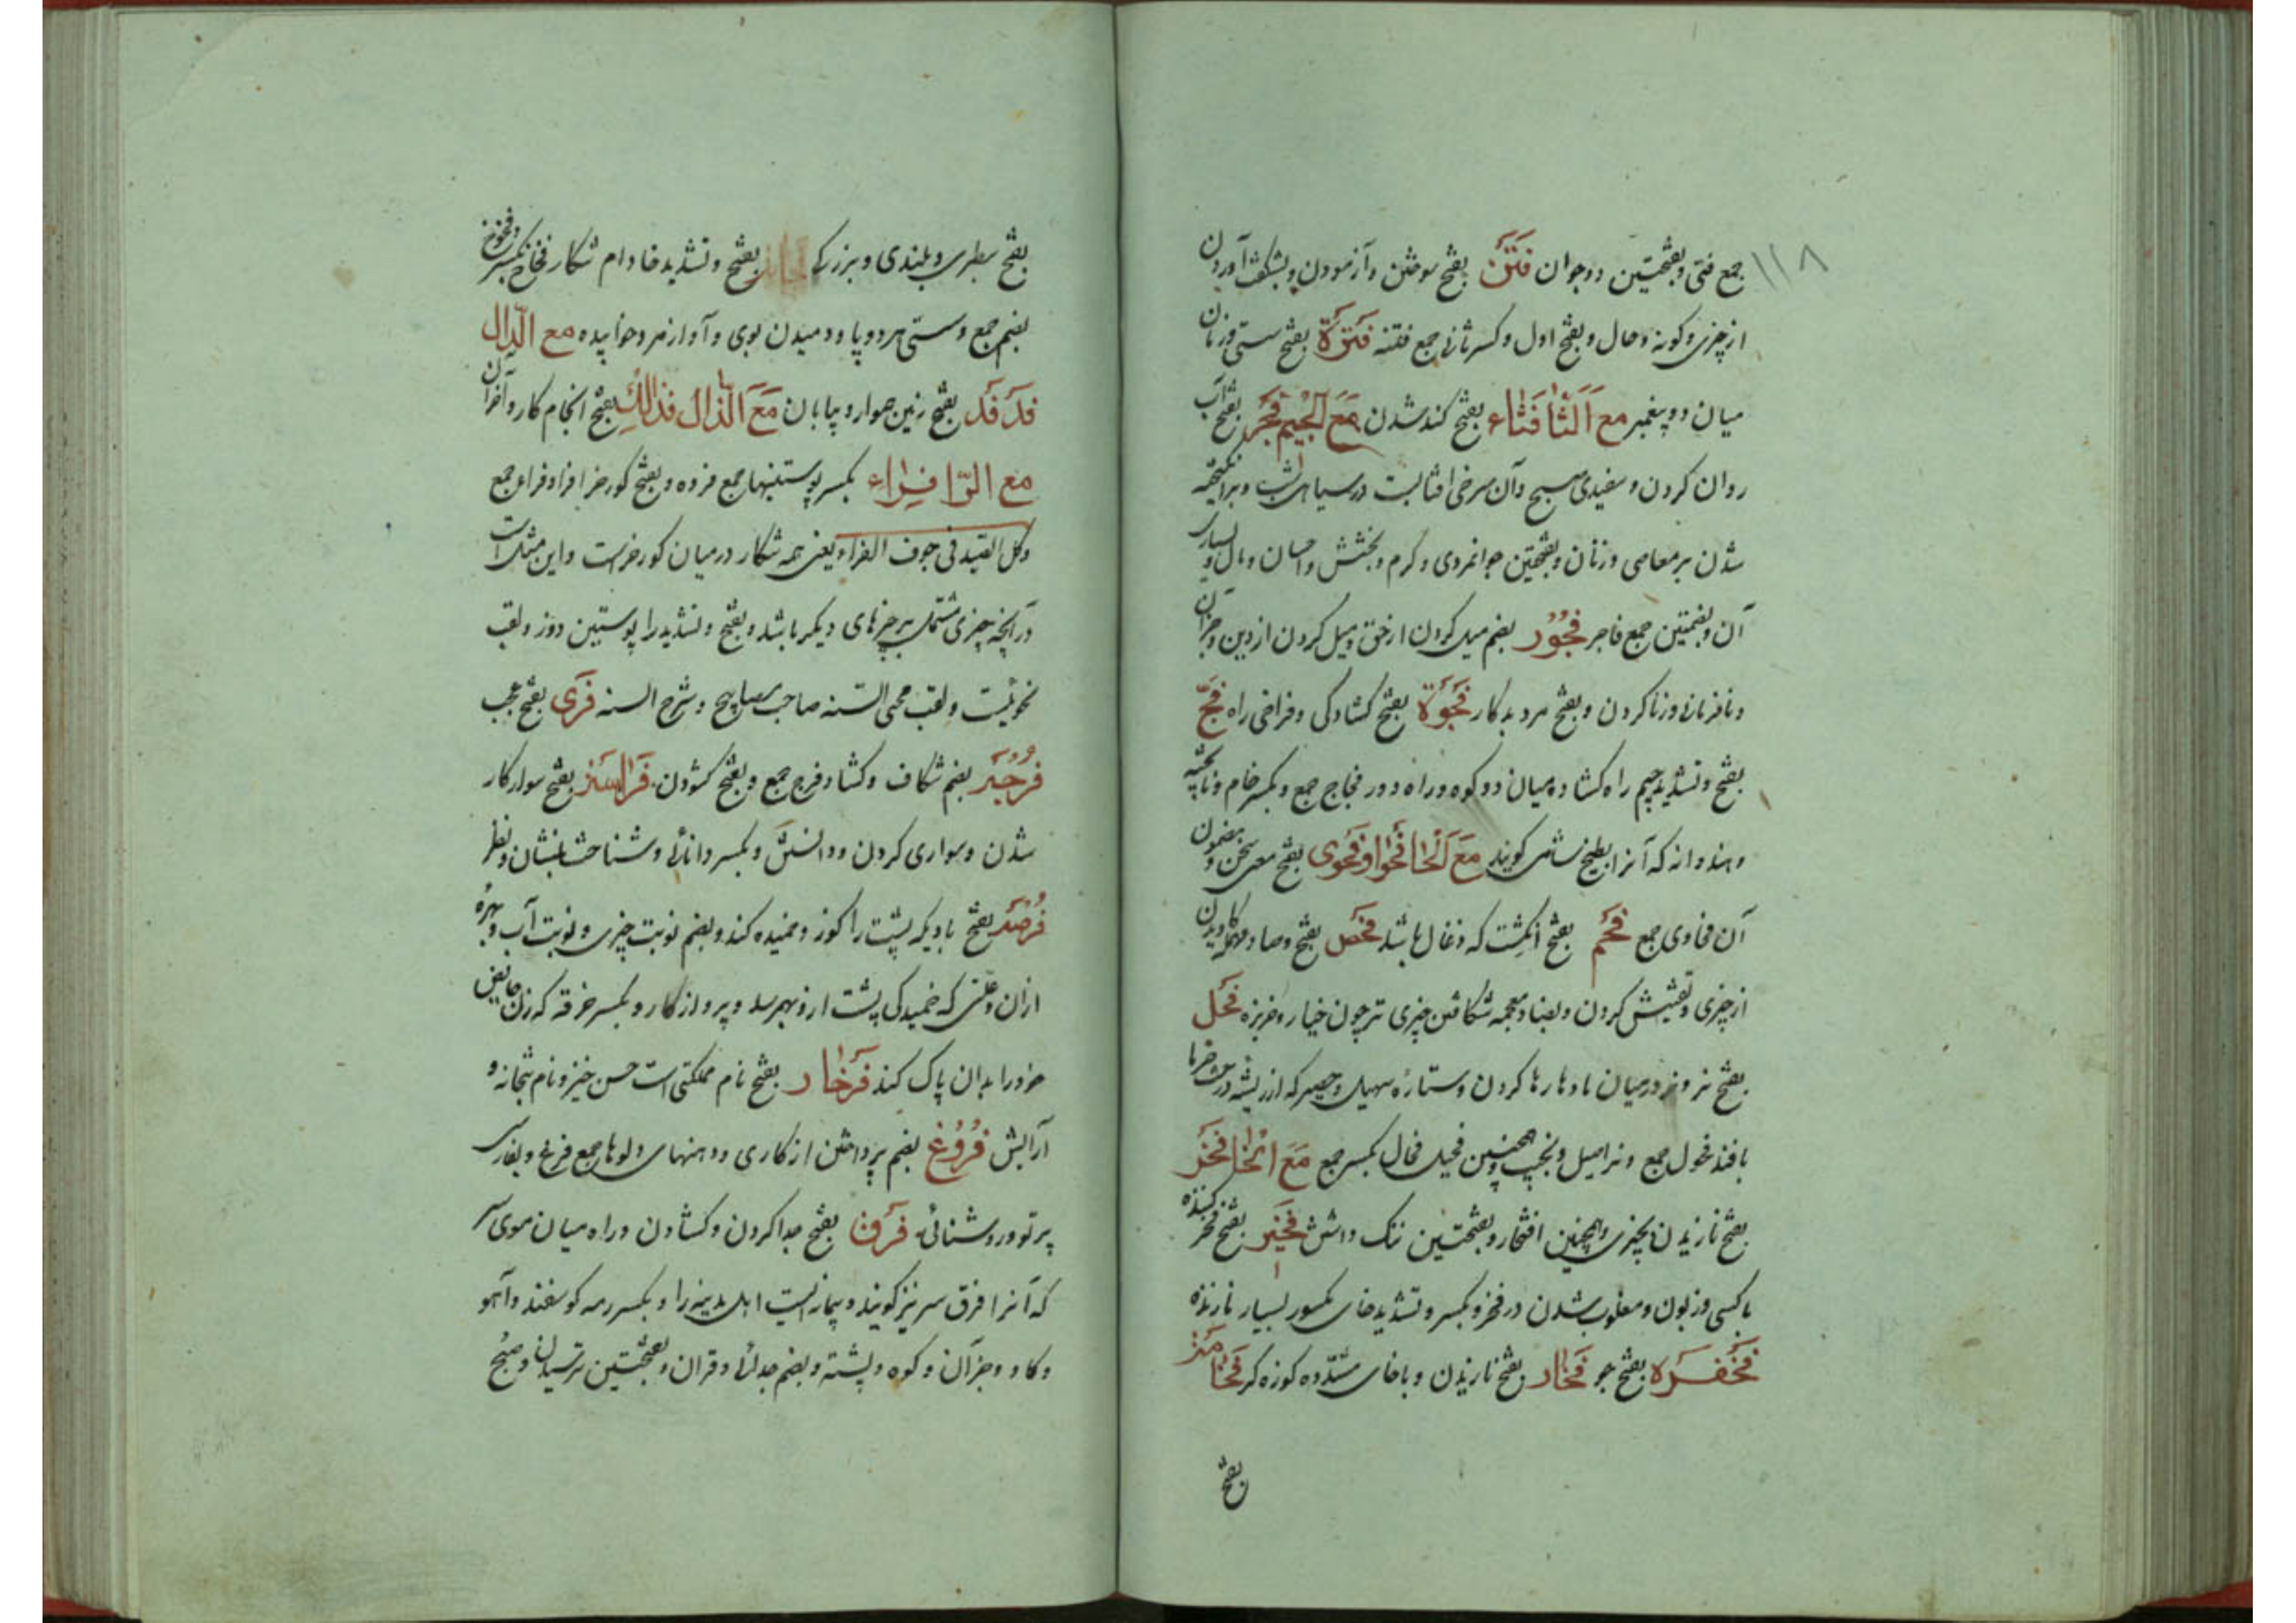 ۱۱۸
جمع فتی و بفتحتین دو جوان فَتَن بفتح سوختن و آزمودن و بشکفت آوردن
از چیزی و کونه و حال و بفتح اول و کسر ثانی جمع فتنه فَتْرَة بفتح سستی و زمان
میان دو پیغمبر مع الثا فثاء بفتح کند شدن مع الجیم فجر بفتح آب
روان کردن و سفیدی صبح و آن سرخی افتابست در سیاهی شب و برانکیخته
شدن بر معاصی و زنان و بفتحتین جوانمردی و کرم و بخشش و احسان و مال و بسیاری
آن و بضمتین جمع فاجر فجور بضم میل کردن از حق و میل کردن از دین و جز آن
و نافرمانی و زنا کردن و بفتح مرد بدکار فجوة بفتح کشادکی و فراخی راه فج
بفتح و تشدید جیم راه کشاده میان دو کوه و راه دور فجاج جمع و بکسر خام و ناپخته
و هندوانه که آنرا بطیخ شامی کویند مع الحا فحوا و فحوی بفتح معنی سخن و مضمون
آن فحاوی جمع فحم بفتح انکشت که زغال باشد فحص بفتح و صاد مهمله کاویدن
از چیزی و تفتیش کردن و بضاد معجمه شکافتن چیزی تر چون خیار و خربزه فحل
بفتح نر و نر در میان ماده رها کردن و ستاره سهیل و حصیر که از ریشه درخت خرما
بافند فحول جمع و نر اصیل و نجیب و همچنین فحیل فحال بکسر جمع مع الخا فخر
بفتح نازیدن بچیزی و همچنین افتخار و بفتحتین ننک داشتن فخیر بفتح فخر کننده
با کسی و زبون و مغلوب شدن در فخر و بکسر و تشدید خای مکسور بسیار نازنده
فخفره بفتح جو فخار بفتح نازیدن و با خای مشدده کوزه کر فخامة
بفتح
بفتح سطبری و بلندی و بزرکی بفتح و تشدید خا دام شکار فخاخ بکسر و فخوخ
بضم جمع و سستی هر دو پا و دمیدن بوی و آواز مرد خوابیده مع الدال
فدفد بفتح زمین هموار و بیابان مع الذال فذالک بفتح انجام کار و آخر آن
مع الرا فراء بکسر پوستینها جمع فروه و بفتح کورخر افرا و فراء جمع
و کل الصید فی جوف الفراء یعنی همه شکار در میان کورخرست و این مثل است
در آنچه چیزی مشتمل بر چیزهای دیکر باشد و بفتح و تشدید را پوستین دوز و لقب
نحویست و لقب محی السنه صاحب مصابیح و شرح السنه فری بفتح عجب
فرجة بضم شکاف و کشاد فرج جمع و بفتح کشودن فراسة بفتح سوارکار
شدن و سواری کردن و دانستن و بکسر دانائی و شناخت بنشان و نظر
فرصة بفتح بادیکه پشت را کوز و خمیده کند و بضم نوبت چیزی و نوبت آب و بهره
ازان و علتی که خمیدکی پشت ازو بهم رسد و پرواز کار و بکسر خرقه که زن حایض
خود را بدان پاک کند فرخار بفتح نام مملکتی است حسن خیز و نام بتخانه و
آرایش فروغ بضم پرداختن از کاری و دهنهای دلوها جمع فرغ و بفارسی
پرتو و روشنائی فرق بفتح جدا کردن و کشادن و راه میان موی سر
که آنرا فرق سر نیز کویند و پیمانه ایست اهل مدینه را و بکسر رمه کوسفند و آهو
و کاو و جز آن و کوه و پشته و بضم جدائی و قران و بفتحتین ترسیدن و صبح